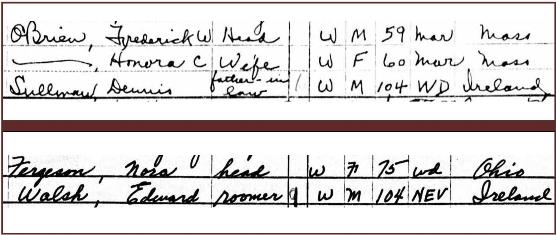 O'Brien, Frederick W Head W M 59 Mar Mass
———, Honora C Wife W F 60 Mar Mass
Sullivan, Dennis father-in law 1 W M 104 WD Ireland
Fergeson, Nora head W F 75 wd Ohio
Walsh, Edward roomer 9 W M 104 NEV Ireland